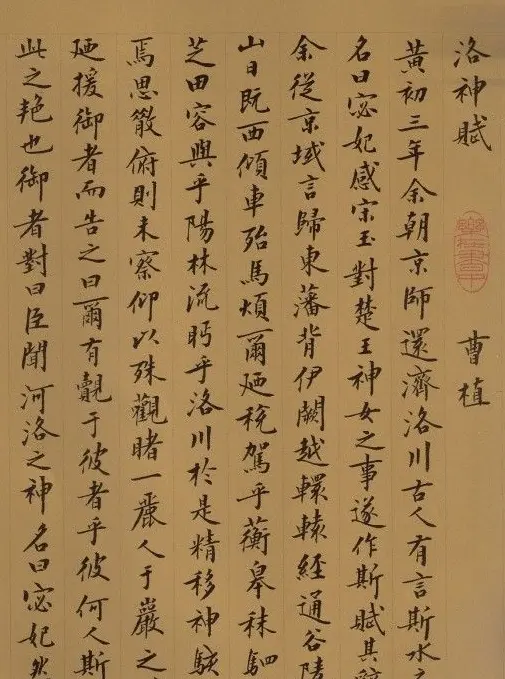 洛神賦 曹植
黃初三年余朝京師還濟洛川古人有言斯水之
名曰宓妃感宋玉對楚王神女之事遂作斯賦其辭
余從京域言歸東藩背伊闕越轘轅經通谷陵
山日既西傾車殆馬煩爾廼稅駕乎蘅皋秣駟
芝田容與乎陽林流眄乎洛川於是精移神駭
焉思散俯則未察仰以殊觀睹一麗人于巖之
廼援御者而告之曰爾有覿于彼者乎彼何人斯
此之艷也御者對曰臣聞河洛之神名曰宓妃然